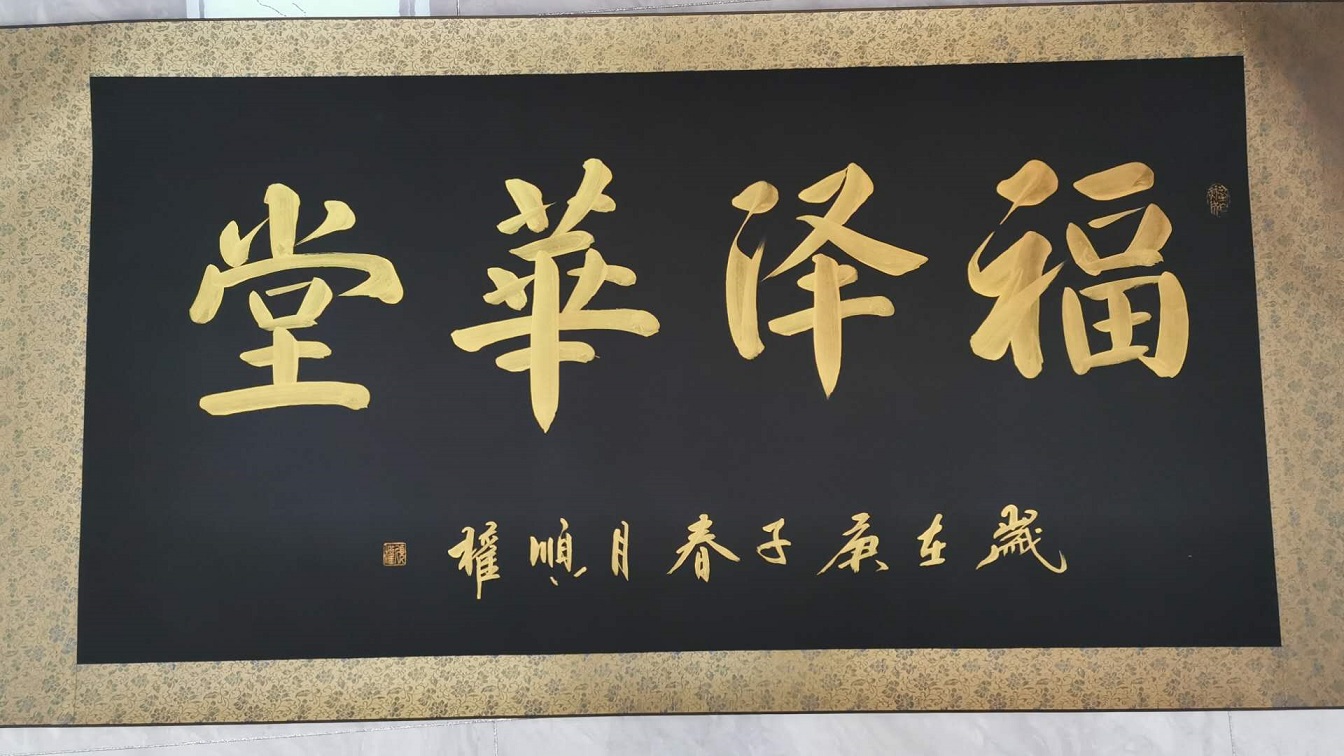 福泽華堂
歲在庚子春月順權